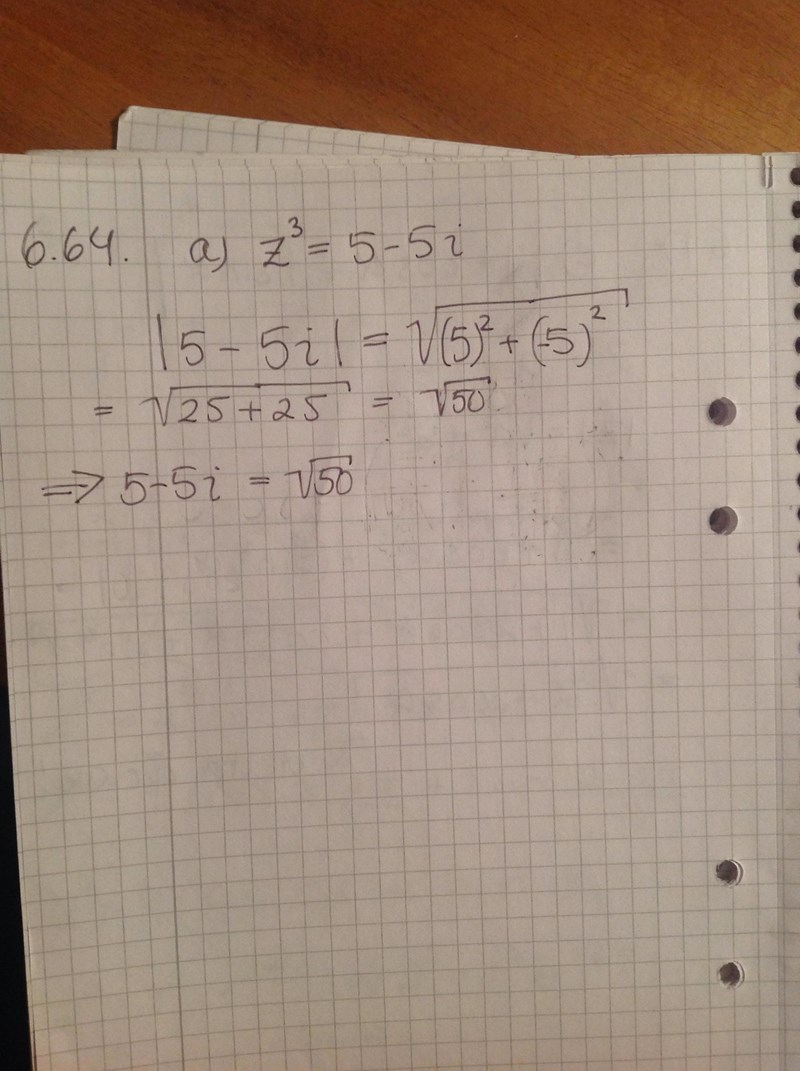 6.64. a) z³ = 5 - 5i
|5 - 5i| = √((5)² + (-5)²)
= √(25 + 25) = √50
⇒ 5 - 5i = √50